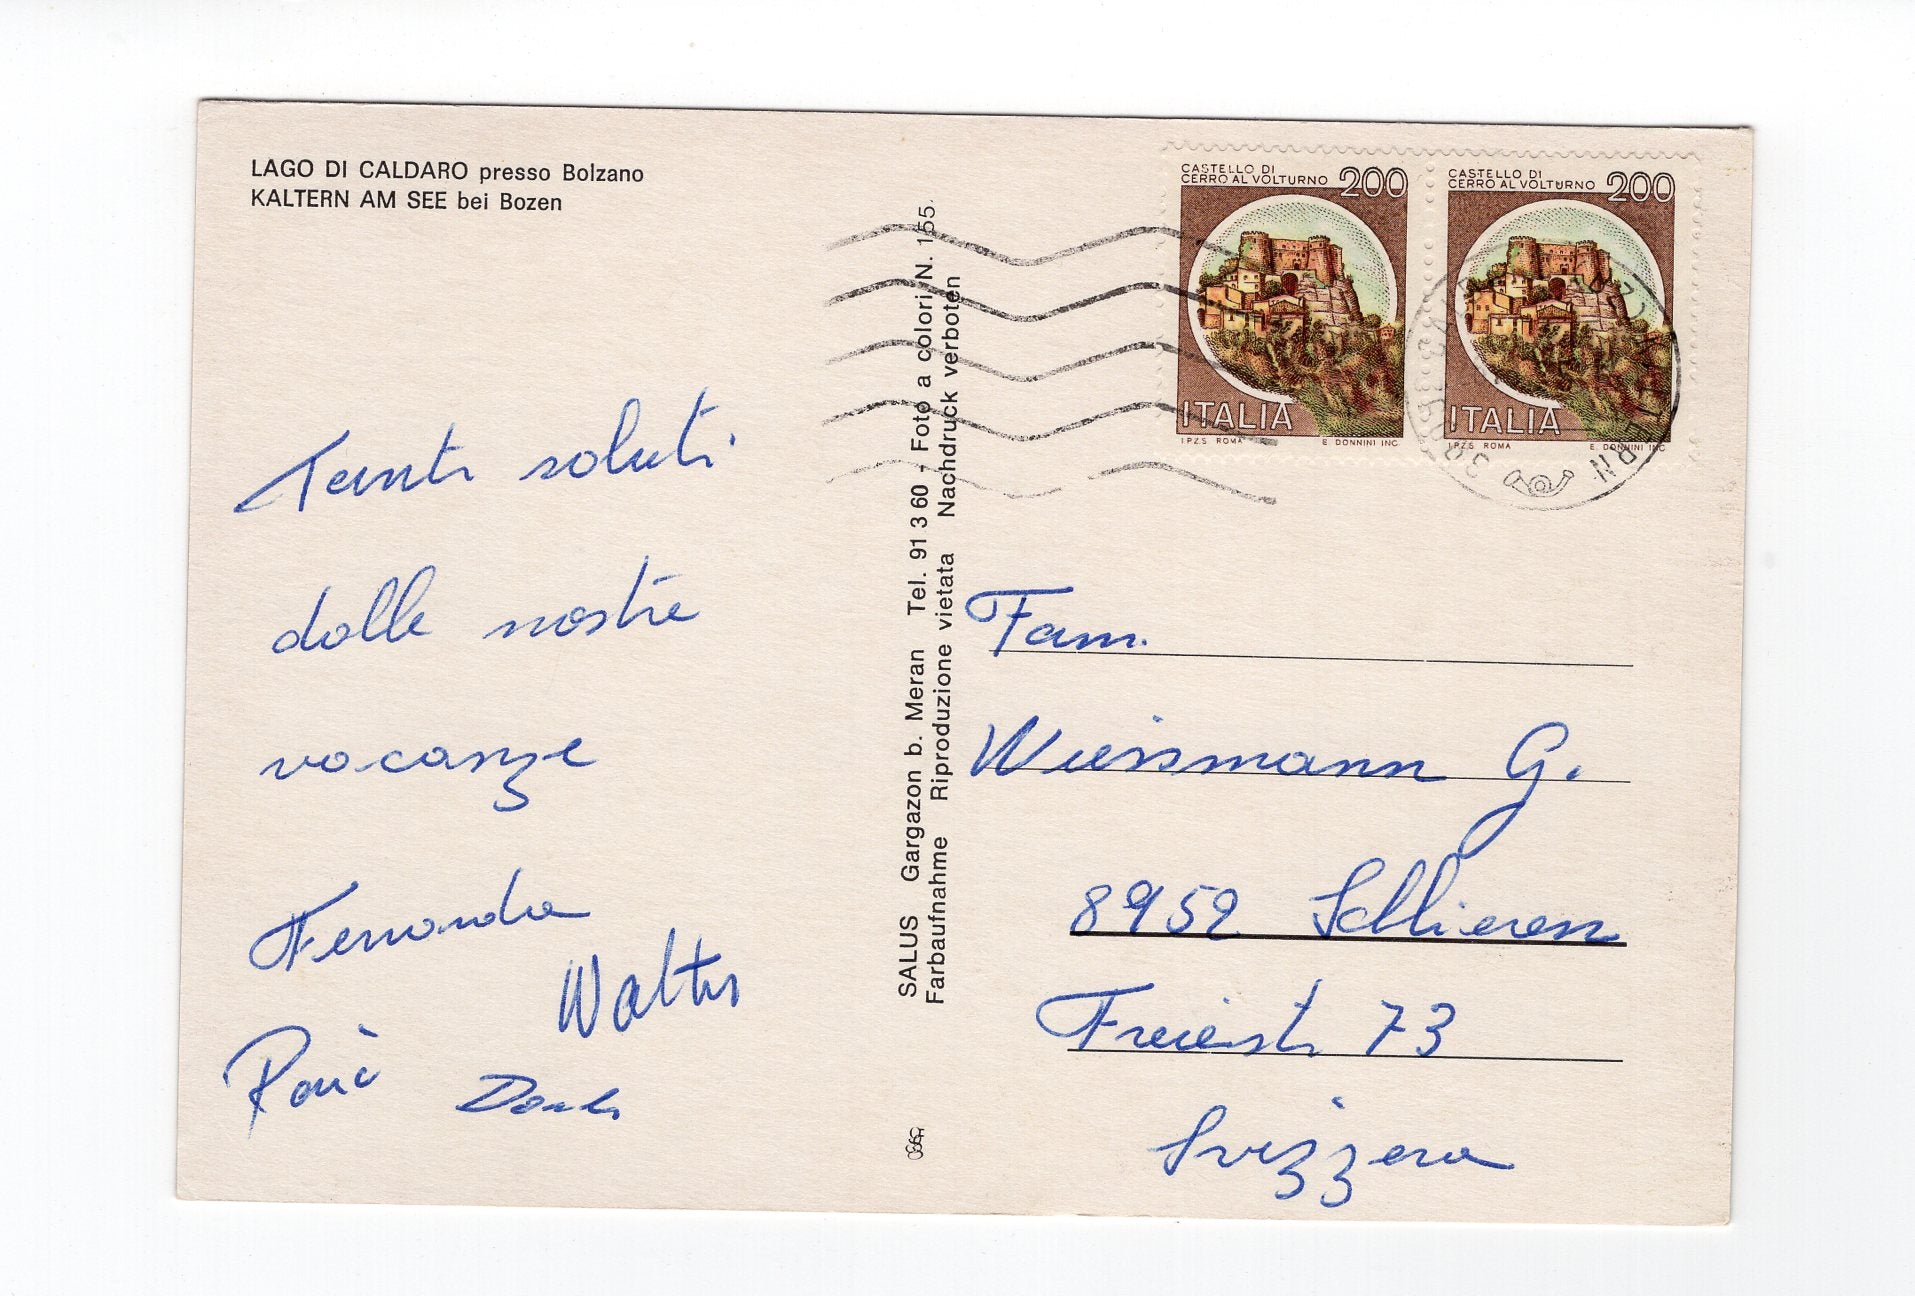 LAGO DI CALDARO presso Bolzano
KALTERN AM SEE bei Bozen
Tanti saluti
dalle nostre
vacanze
Fernanda
Walter
SALUS Gargazon b. Meran Tel. 91 3 60 - Foto a colori N. 155.
Farbaufnahme Riproduzione vietata Nachdruck verboten
CASTELLO DI
CERRO AL VOLTURNO 200
ITALIA
I.P.Z.S. ROMA E. DONNINI INC.
CASTELLO DI
CERRO AL VOLTURNO 200
ITALIA
I.P.Z.S. ROMA E. DONNINI INC.
Fam.
G.
8952 Schlieren
Freiestr 73
Svizzera